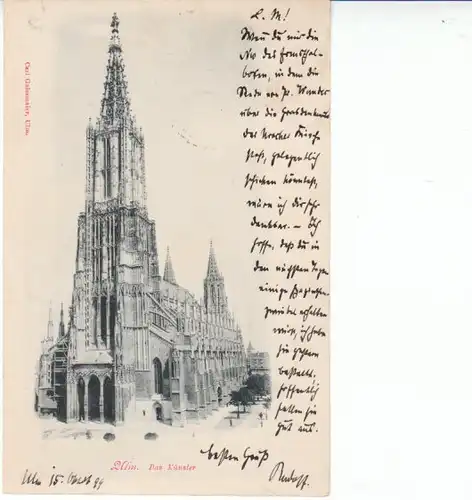 Carl Gutermeier, Ulm.
L. M!
Wenn du mir die
No des
boten, in dem die
Rede von Pf.
über die
der Kirche
gelegentlich
schicken könntest,
wäre ich dir sehr
dankbar. – Ich
hoffe, daß du in
den nächsten Tagen
einige
erhalten
wirst, ich habe
sie gestern
bestellt.
Hoffentlich
fallen sie
gut aus.
besten Gruß
Ulm. Das Münster
Ulm 15. 99